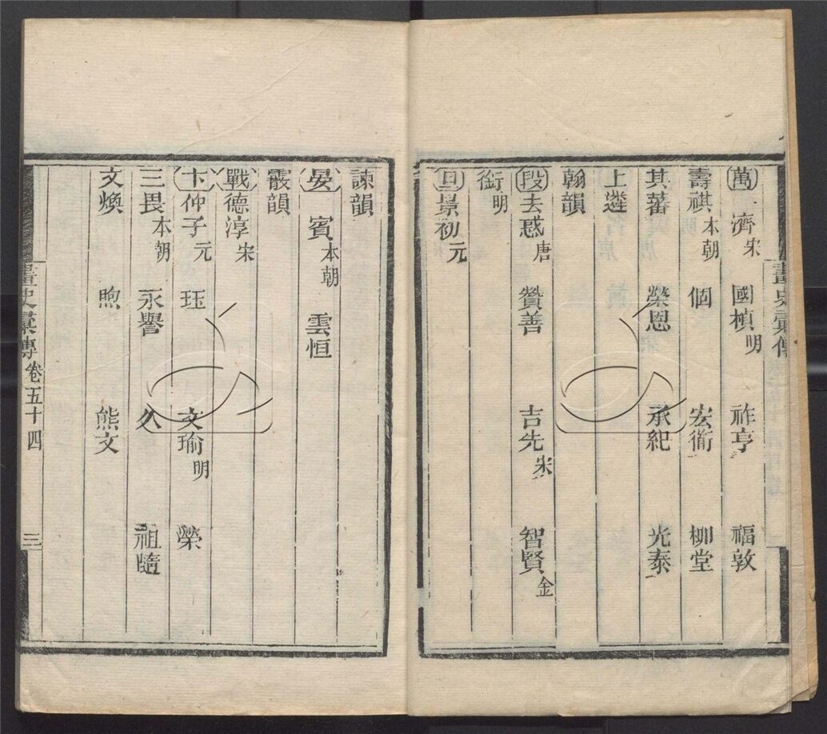 萬一濟宋 國楨明 祚亨 福敦
壽祺本朝 個 宏衜 柳堂
其蕃 榮恩 承紀 光泰
上遴
翰韻
段去惑唐 贊善 吉先宋 智賢金
衒明
旦景初元
諫韻
晏賓本朝 雲恒
霰韻
戰德淳宋
卞仲子元 珏 文瑜明 榮
三畏本朝 永譽 久 祖隨
文煥 煦 熊文
畫史彙傳 卷五十四 三